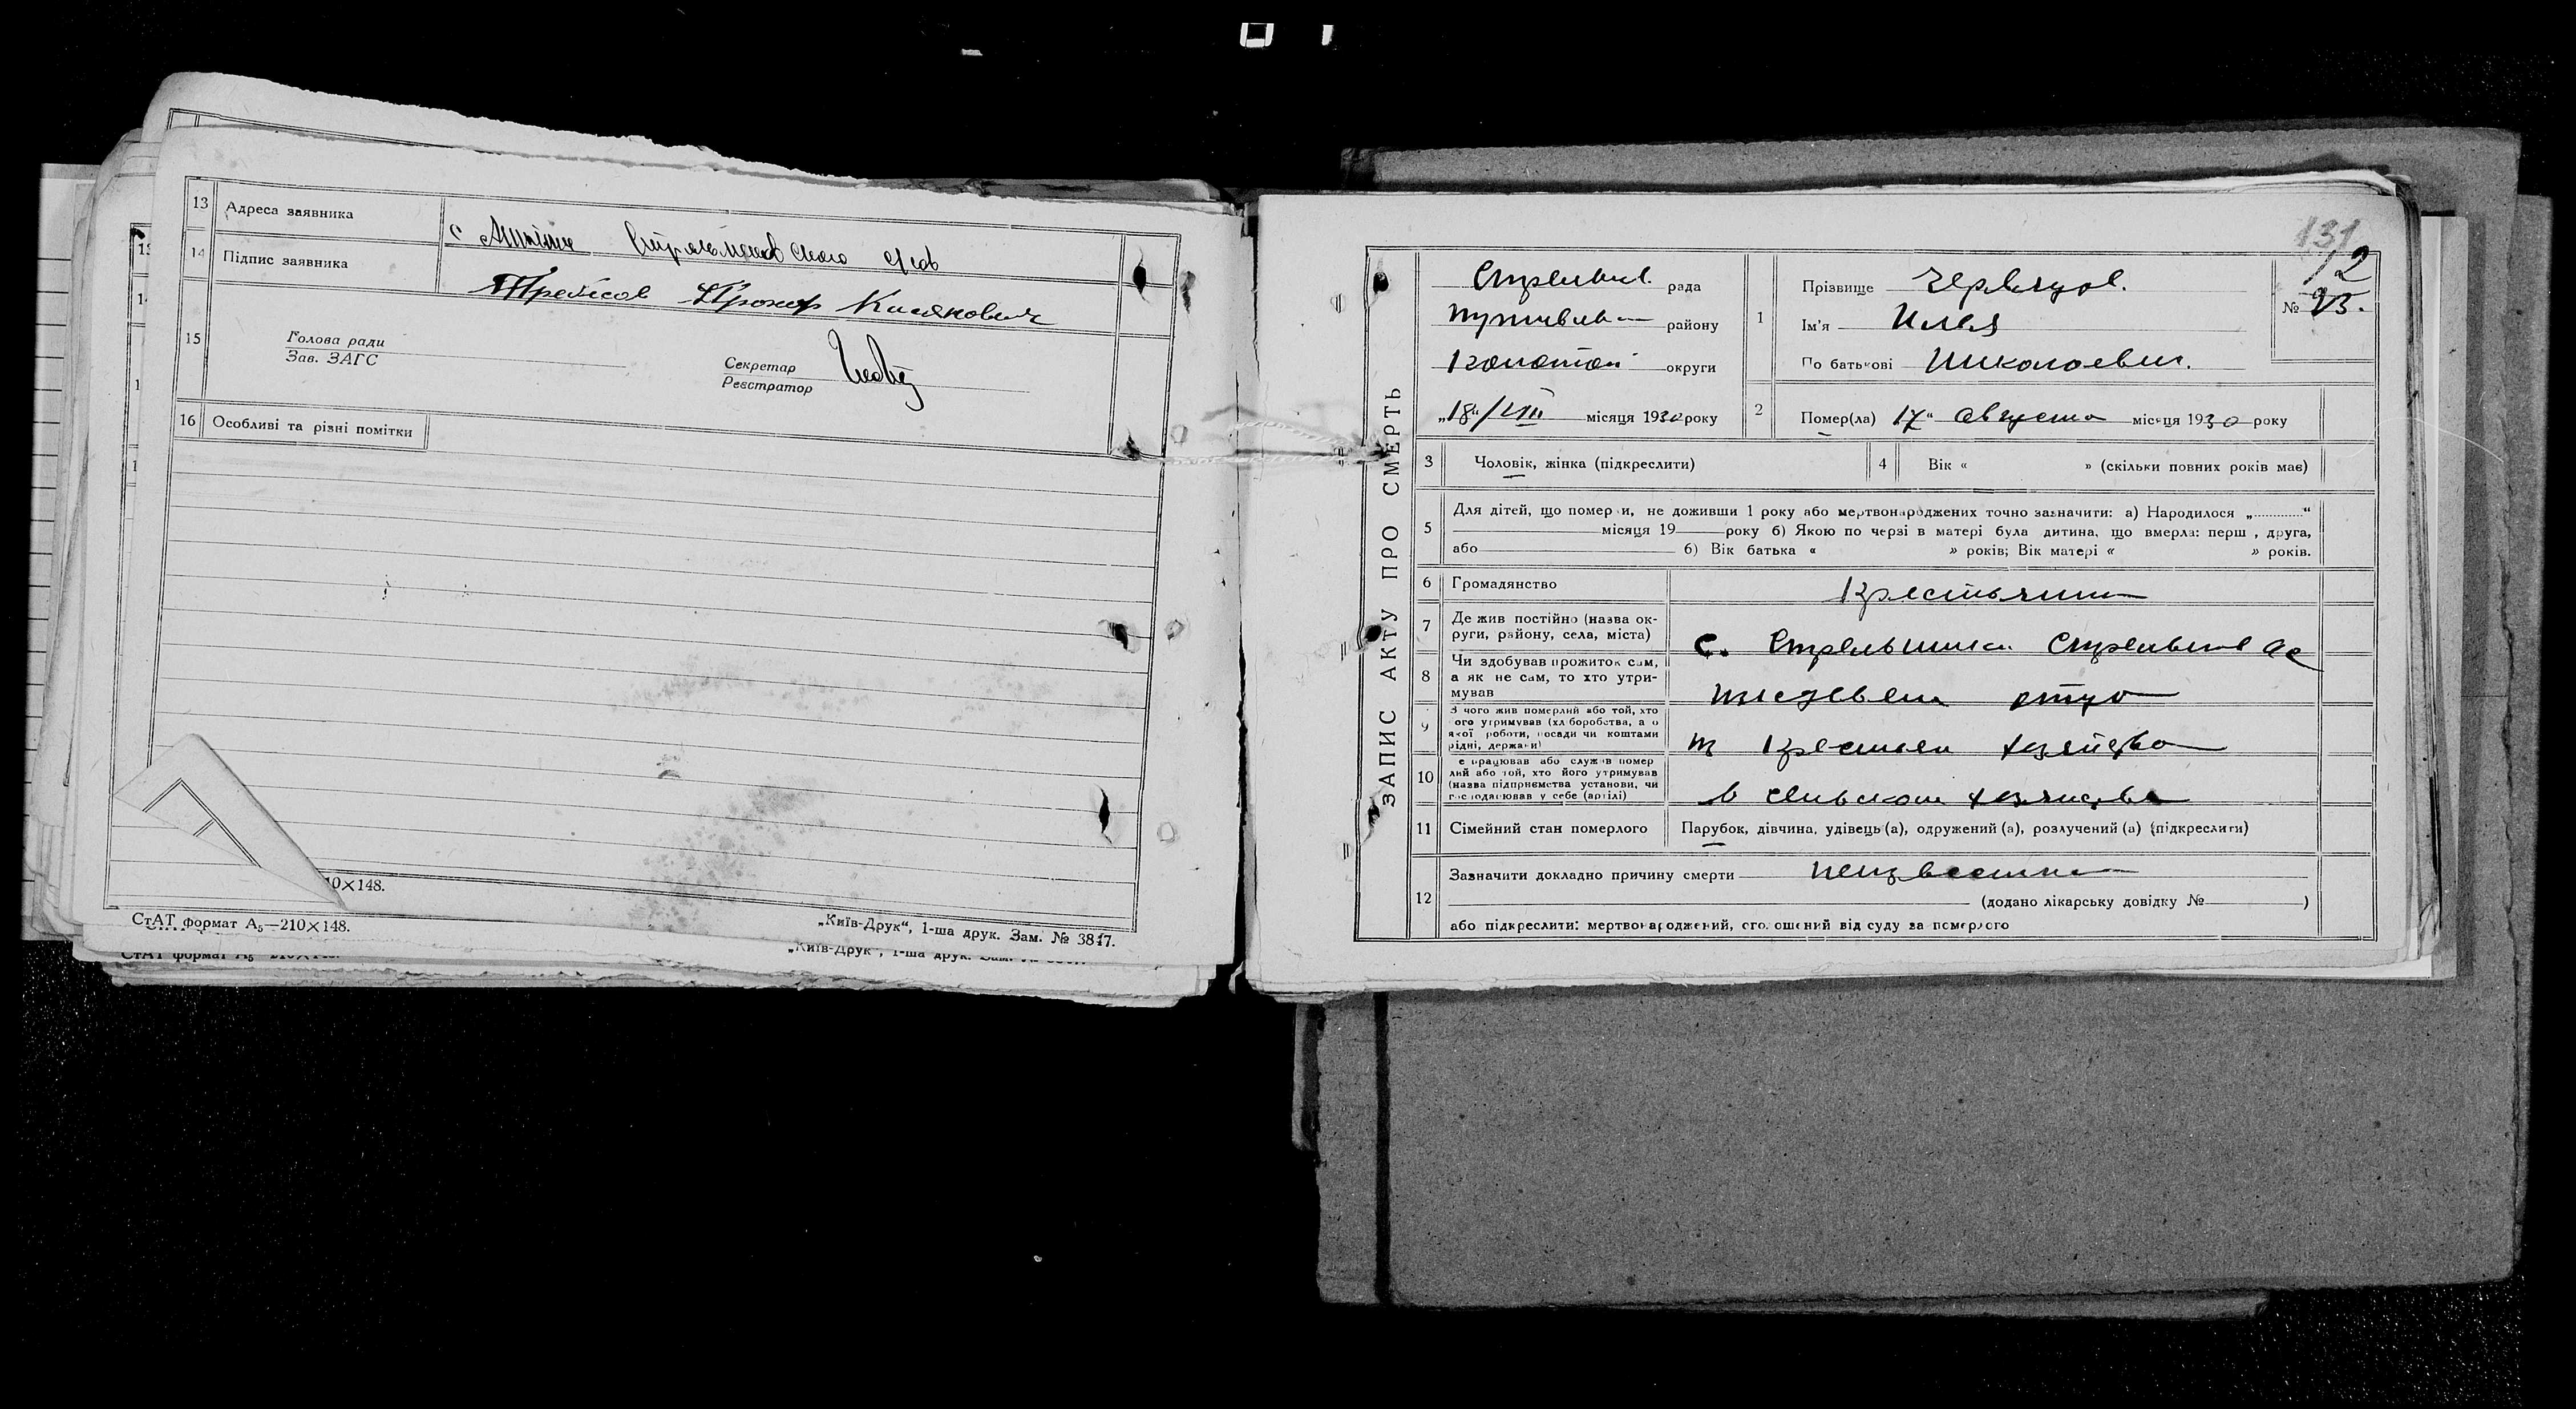 13 Адреса заявника с
14 Підпис заявника Прокор Касянович
15 Голова ради
Зав. ЗАГС
Секретар
Реєстратор
16 Особливі та різні помітки
10×148.
СтАТ формат А5—210×148.
„Київ-Друк“, 1-ша друк. Зам. № 3847.
СтАТ формат А5
„Київ-Друк“, 1-ша друк. Зам.
131
12
№ 93.
ЗАПИС АКТУ ПРО СМЕРТЬ
Стрельник. рада
Путивль района району
Конотоп округи
„18“/VIII місяця 1930 року
1 Прізвище Червяцов.
Ім'я Илья
По батькові Николоевич.
2 Помер(ла) 17“ августа місяця 1930 року
3 Чоловік, жінка (підкреслити)
4 Вік « » (скільки повних років має)
5 Для дітей, що померли, не доживши 1 року або мертвонароджених точно зазначити: а) Народилося „............“
місяця 19 року б) Якою по черзі в матері була дитина, що вмерла: перш , друга,
або б) Вік батька « » років; Вік матері « » років.
6 Громадянство Крестьянин
7 Де жив постійно (назва ок-
руги, району, села, міста) с. Стрельники
8 Чи здобував прожиток сам,
а як не сам, то хто утри-
мував иждевен отца
9 З чого жив померлий або той, хто
ого утримував (хліборобства, а о
якої роботи, посади чи коштами
рідні, держави)
10 е працював або служив помер
лий або той, хто його утримував
(назва підприємства установи, чи
господарював у себе (артілі) в сельском хозяйстве
11 Сімейний стан померлого Парубок, дівчина, удівець(а), одружений(а), розлучений(а) (підкреслити)
12 Зазначити докладно причину смерти неизвестна
(додано лікарську довідку № )
або підкреслити: мертвонароджений, оголошений від суду за померлого